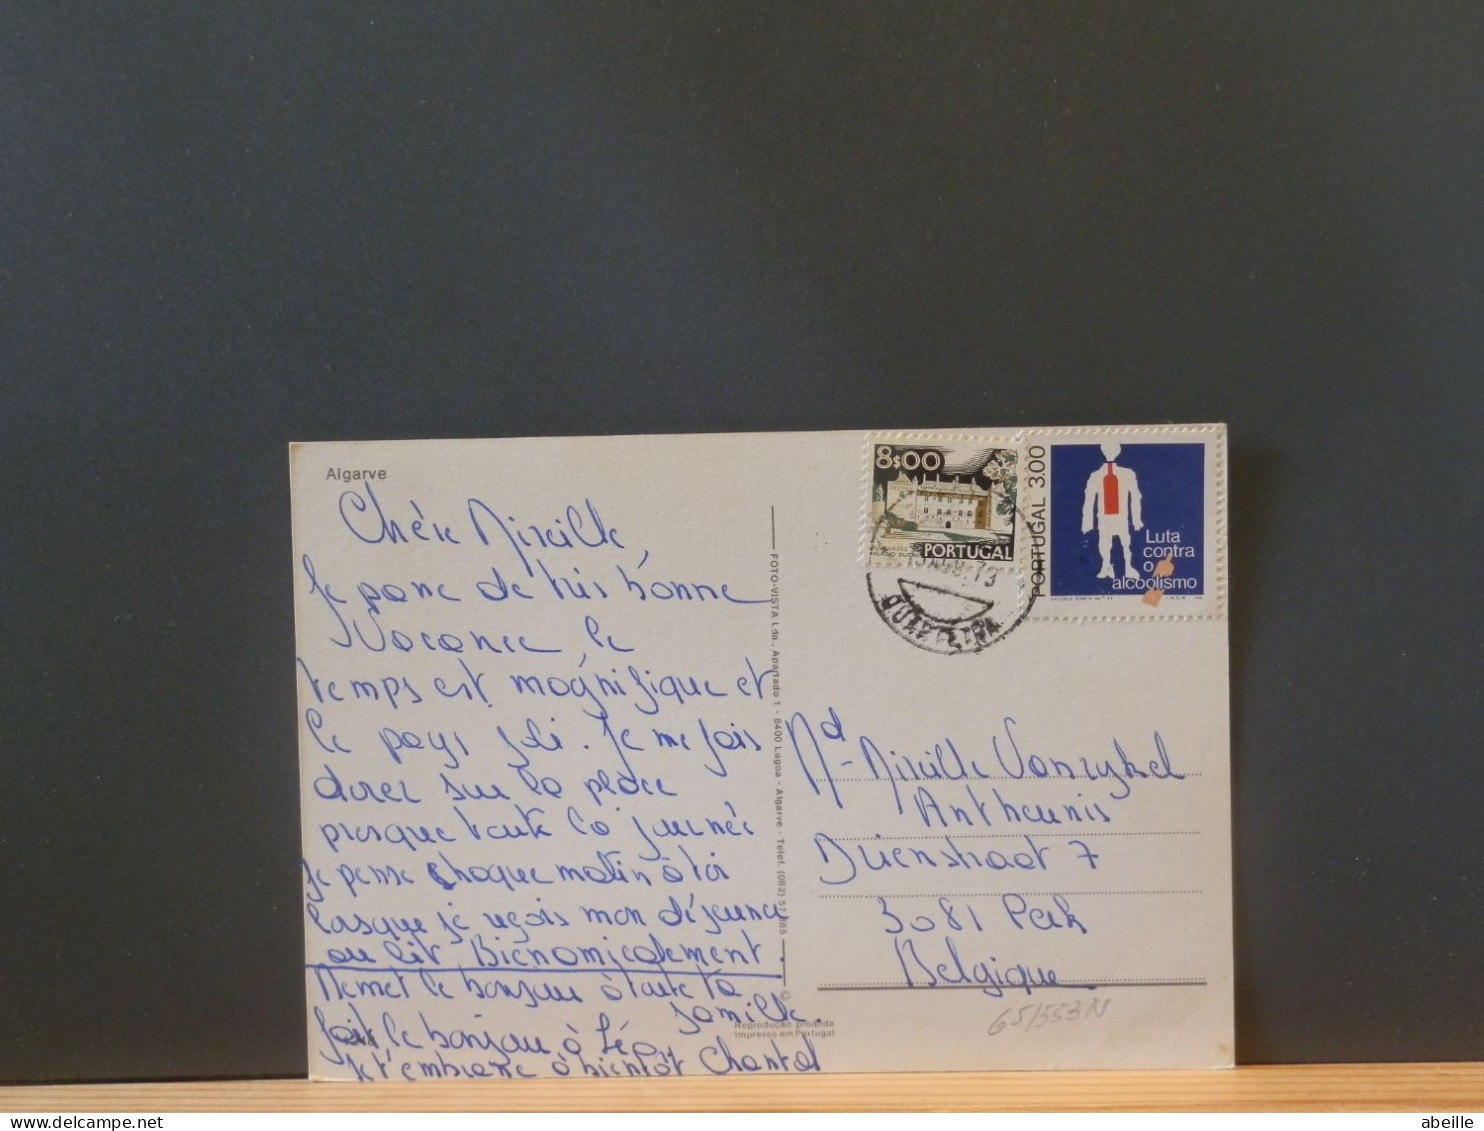 Algarve
Chère Mireille,
Je passe de très bonne
Vacance le
temps est magnifique et
le pays joli. Je me fais
dorer sur la place
presque toute la journée
Je pense chaque matin à toi
lorsque je reçois mon déjeuner
au lit. Bienamicalement.
Remet le bonjour à toute ta
famille.
fait le bonjour à Léo
Je t'embrasse à bientôt Chantal
FOTO-VISTA Lda., Apartado 1 - 8400 Lagoa - Algarve - Telef. (082)
©
Reprodução proibida
Impresso em Portugal
8$00
PALÁCIO DUCAL
PORTUGAL
PORTUGAL 3.00
Luta
contra
o
alcoolismo
QUARTEIRA
Md Mireille Vanrykel
Antheunis
Driesstraat 7
3081 Perk
Belgique
65/553N
abeille